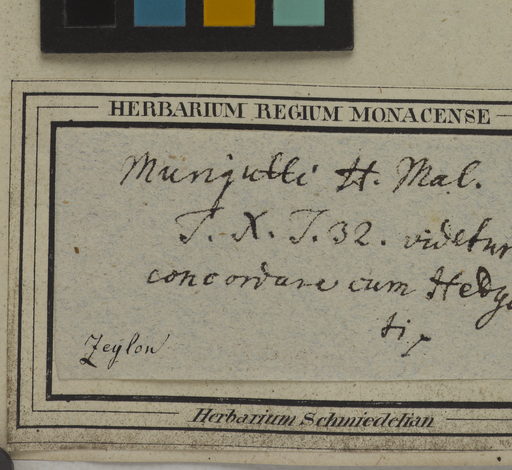 HERBARIUM REGIUM MONACENSE
Mungutti H. Mal.
T. X. T. 32. videtur
concordare cum Hedyo
tis
Zeylon
Herbarium Schmiedelian